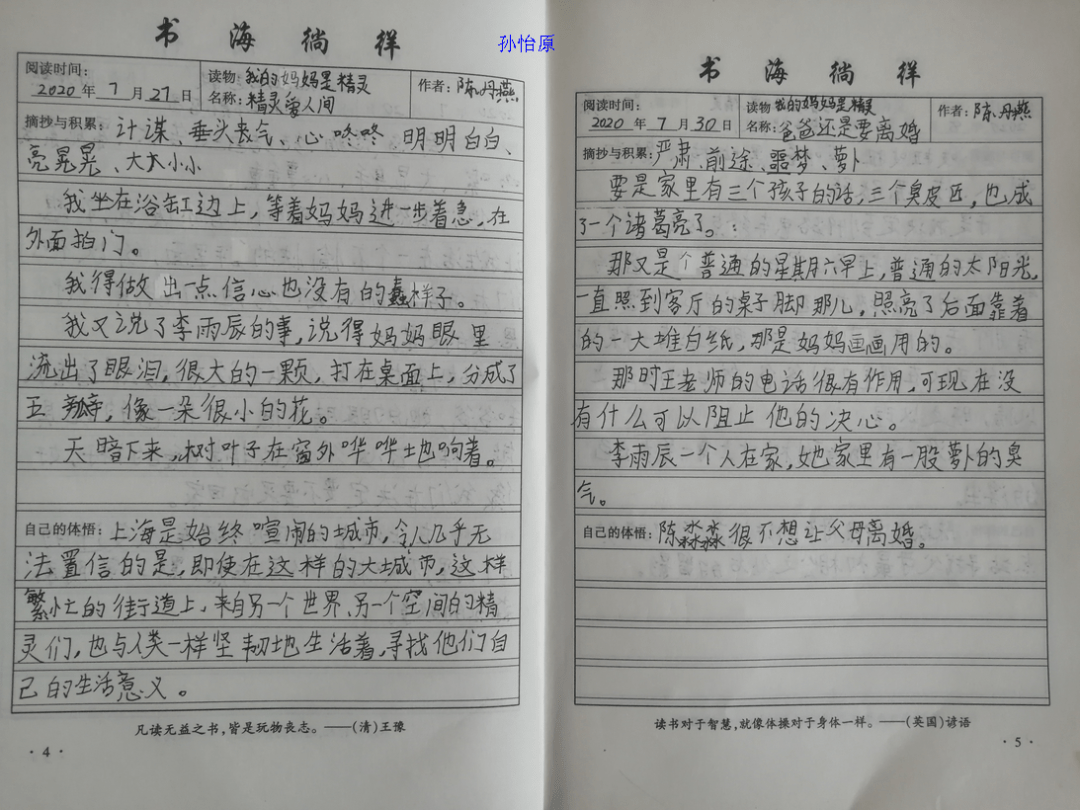 孙怡原
书海徜徉
阅读时间：
2020年7月27日
读物 我的妈妈是精灵
名称：精灵与人间
作者：陈丹燕
摘抄与积累：计谋、垂头丧气、心咚咚、明明白白、
亮晃晃、大大小小
我坐在浴缸边上，等着妈妈进一步着急，在
外面拍门。
我得做出一点信心也没有的蠢样子。
我又说了李雨辰的事，说得妈妈眼里
流出了眼泪，很大的一颗，打在桌面上，分成了
五瓣，像一朵很小的花。
天暗下来，树叶子在窗外哗哗地响着。
自己的体悟：上海是始终喧闹的城市，令人几乎无
法置信的是，即使在这样的大城市，这样
繁忙的街道上，来自另一个世界、另一个空间的精
灵们，也与人类一样坚韧地生活着，寻找他们自
己的生活意义。
凡读无益之书，皆是玩物丧志。——(清)王豫
·4·
书海徜徉
阅读时间：
2020年7月30日
读物 我的妈妈是精灵
名称：爸爸还是要离婚
作者：陈丹燕
摘抄与积累：严肃、前途、噩梦、萝卜
要是家里有三个孩子的话，三个臭皮匠，也成
了一个诸葛亮了。：
那又是个普通的星期六早上，普通的太阳光，
一直照到客厅的桌子脚那儿，照亮了后面靠着
的一大堆白纸，那是妈妈画画用的。
那时王老师的电话很有作用，可现在没
有什么可以阻止他的决心。
李雨辰一个人在家，她家里有一股萝卜的臭
气。
自己的体悟：陈淼淼很不想让父母离婚。
读书对于智慧，就像体操对于身体一样。——(英国)谚语
·5·